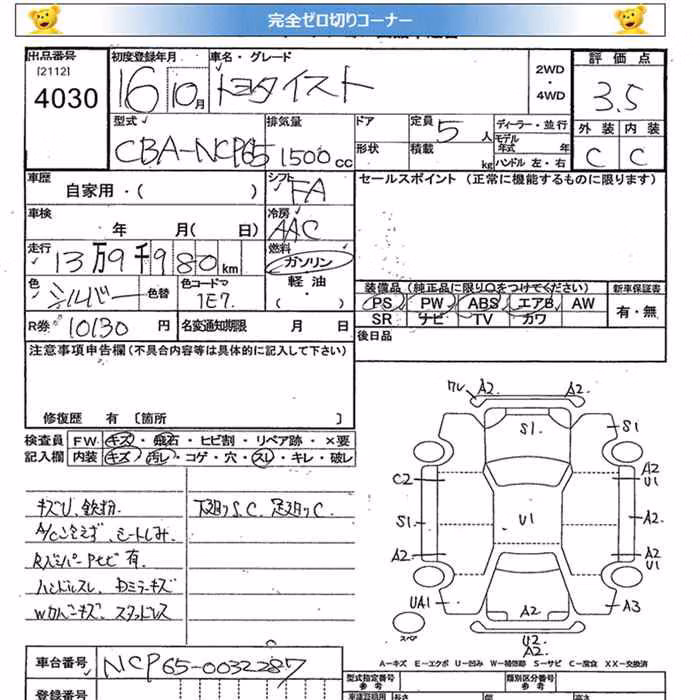 完全ゼロ切りコーナー
出品番号
[2112]
4030
初度登録年月
16 10月
車名・グレード
トヨタイスト
2WD
・
4WD
評価点
3.5
外装 内装
C C
型式
CBA-NCP65
排気量
1500 cc
ドア
形状
定員 5 人
積載 kg
ディーラー・並行
モデル年式 年
ハンドル 左・右
車歴
自家用・( )
シフト
FA
セールスポイント (正常に機能するものに限ります)
車検
年 月( 日)
冷房
AAC
走行
13万9千980km
燃料
ガソリン
軽油
・
( )
色
シルバー 色替
色コードNo
1E7.
装備品 (純正品に限り○をつけてください)
PS PW ABS エアB AW
SR ナビ TV カワ
新車保証書
有・無
R券 10130 円
名変通知期限 月 日
後日品
注意事項申告欄(不具合内容等は具体的に記入して下さい)
修復歴 有 [箇所 ]
検査員 FW キズ・飛石・ヒビ割・リペア跡・×要
記入欄 内装 キズ・汚レ・コゲ・穴・スレ・キレ・破レ
キズU、鉄粉
シートしみ
有
ハンドルスレ、Dミラーキズ
スタッドレス
下廻りS、C、足廻りC
ワレ A2 A2
S1
S1
C2
A2
U1
S1
U1
A2
A2
A2
U1
UA1
A2
A3
スペア
U2
A2
A-キズ E-エクボ U-凹み W-補修跡 S-サビ C-腐食 XX-交換済
車台番号 NCP65-0032287
登録番号
型式指定番号
参考
類別区分番号
参考